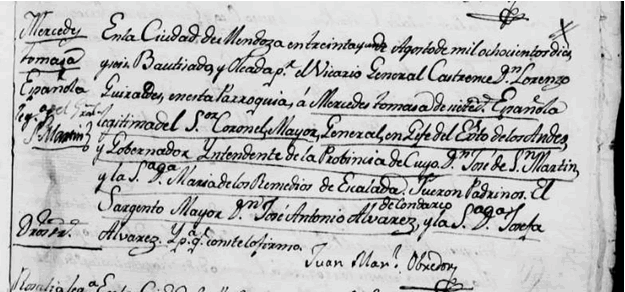 Mercedes
tomasa
Española
leg.ª del Gral
S.n Martin
En la Ciudad de Mendoza en treinta y uno de Agosto de mil ochocientos dies
y seis Bautisado, y Oleada p.r el Vicario General Castrence D.n Lorenzo
Guiraldes, en esta Parroquia, á Mercedes tomasa de siete d.s Española
legitima del S.or Coronel Mayor, General, en Gefe del Exto de los Andes,
y Gobernador Yntendente de la Probincia de Cuyo D.n José de S.n Martin,
y la S.ª D.ª Maria de los Remedios de Escalada. Fueron Padrinos. El
Sargento Mayor D.n José Antonio Alvarez de Condarco, y la S.ª D.ª Josefa
Alvarez. Y p.ª q.e conste lo firmo.
Juan Man.l Obredor